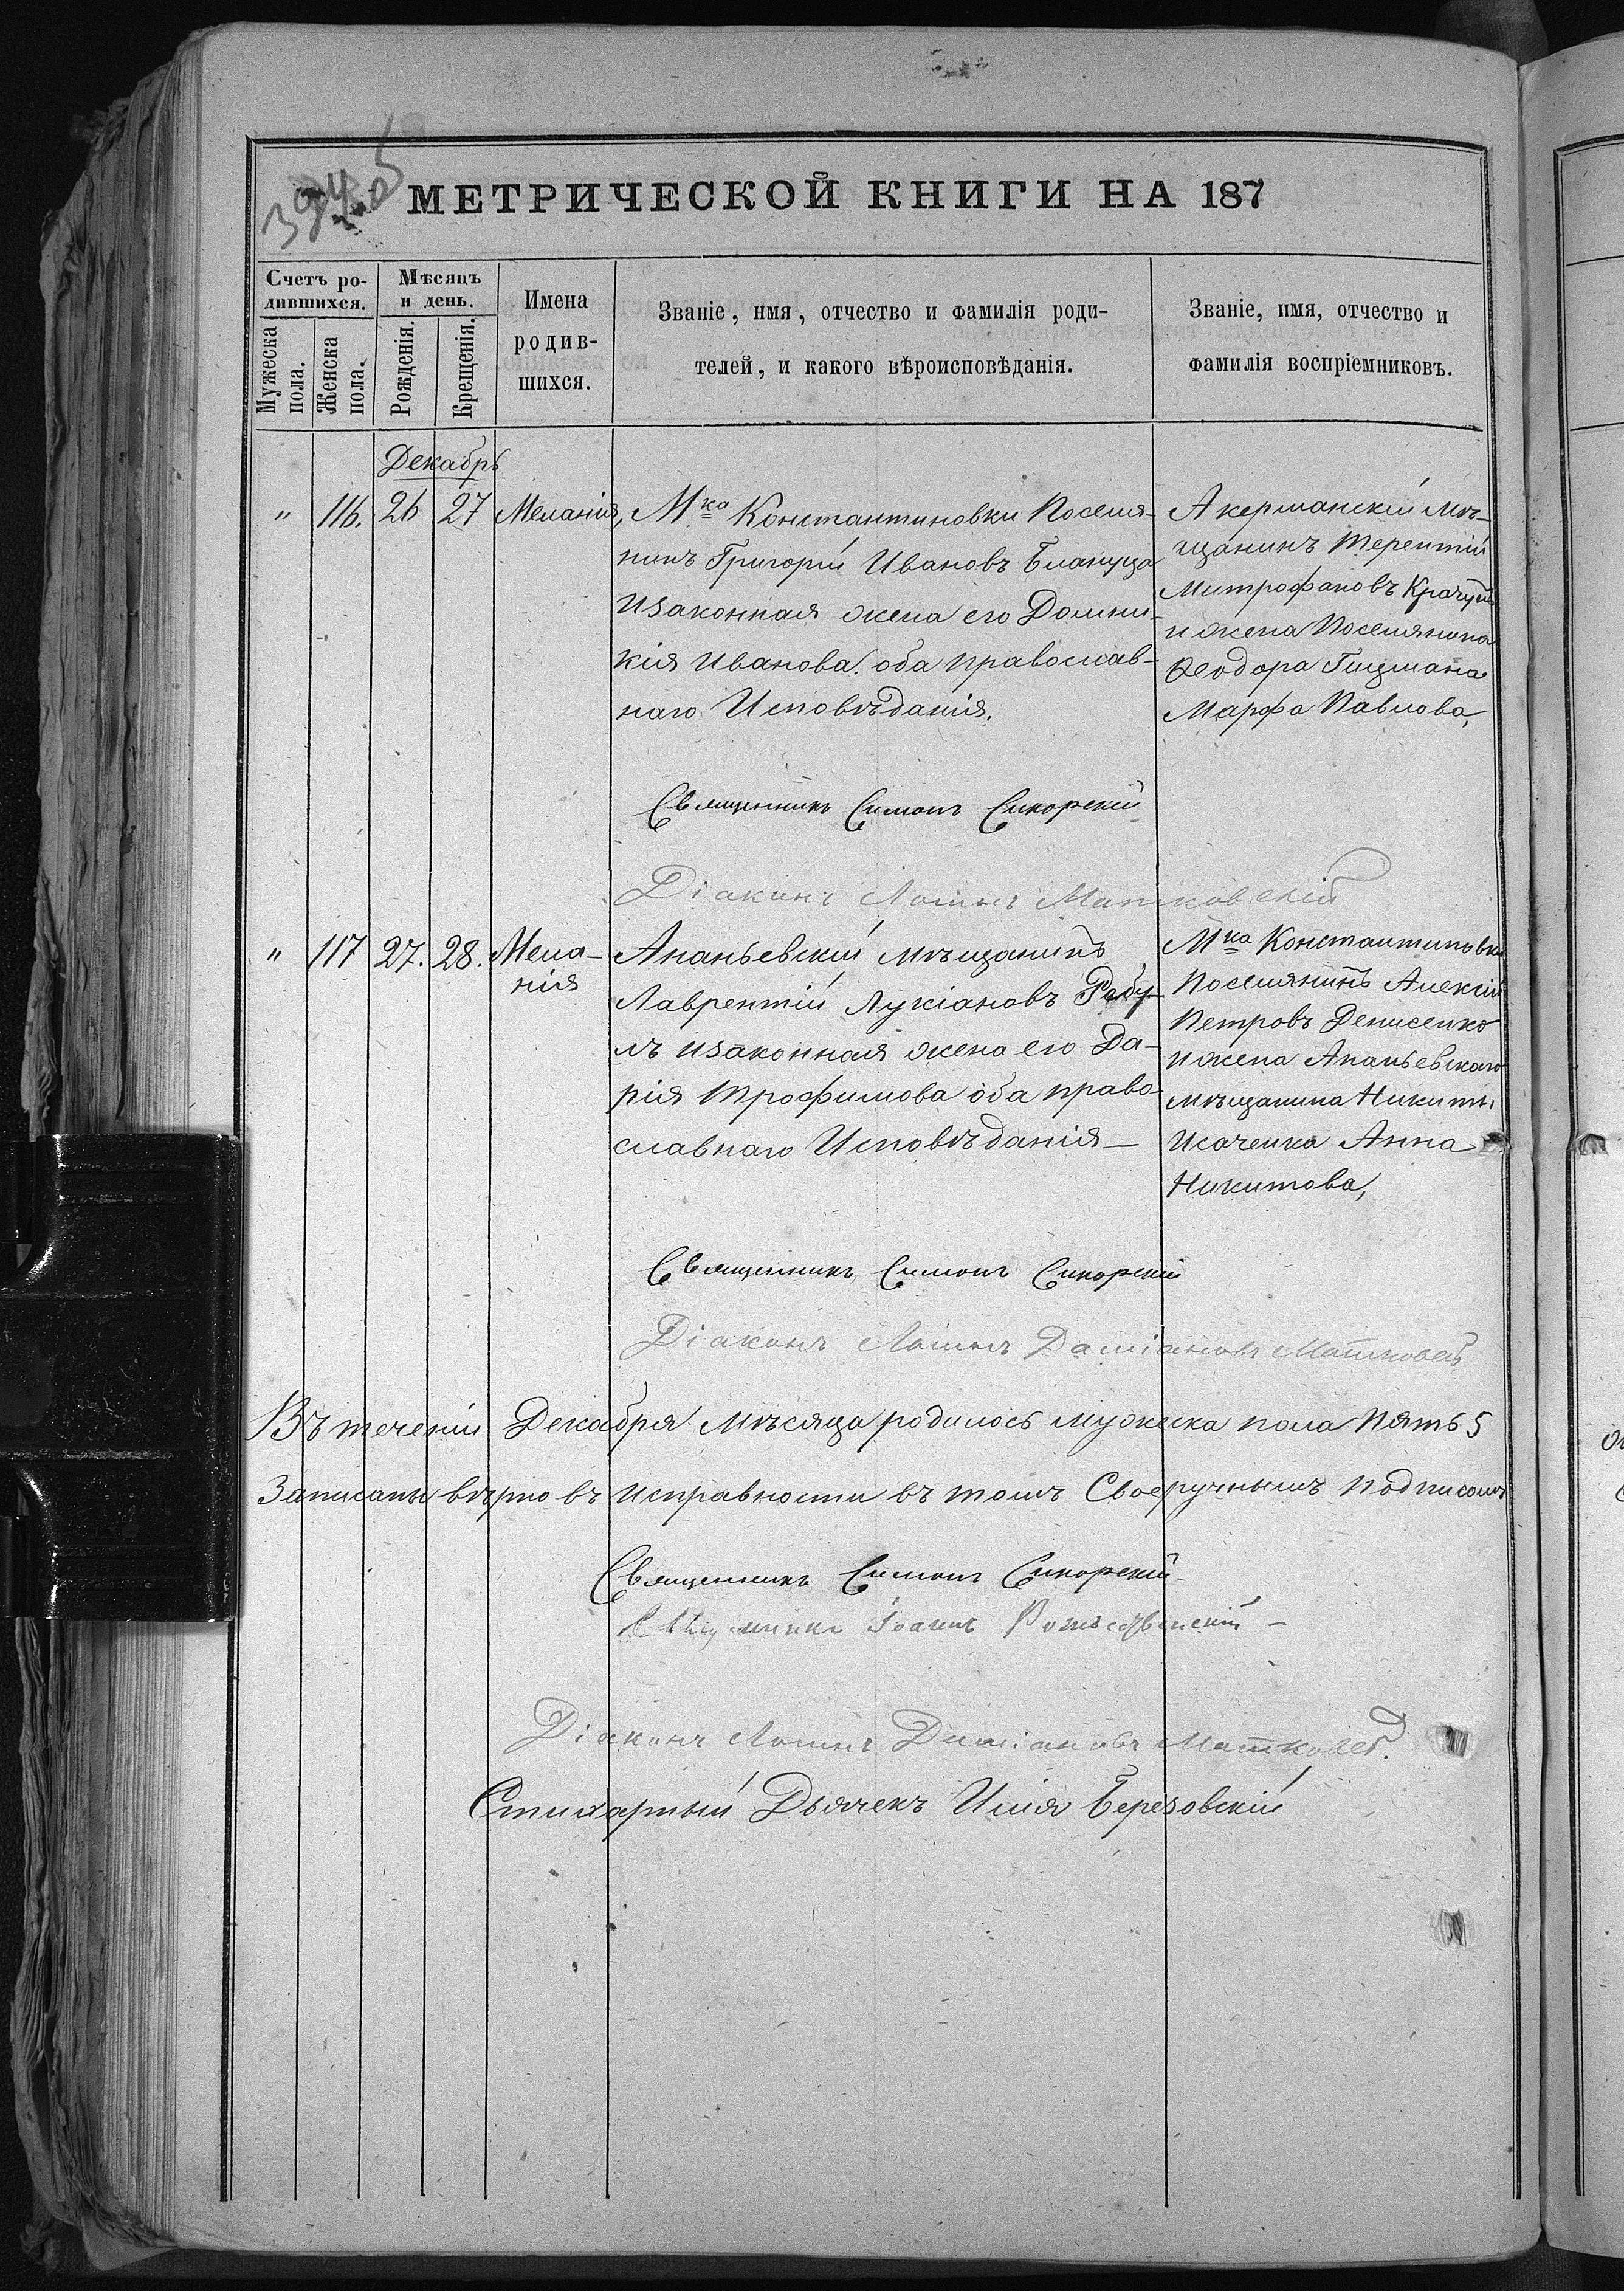 МЕТРИЧЕСКОЙ КНИГИ НА 187
Счетъ ро-
дившихся.
Мужеска
пола.
Женска
пола.
Мѣсяцъ
и день.
Рожденія.
Крещенія.
Имена
родив-
шихся.
Званіе, имя, отчество и фамилія роди-
телей, и какого вѣроисповѣданія.
Званіе, имя, отчество и
фамилія воспріемниковъ.
Декабрь
" 116. 26 27 Меланія,
Мка Константиновки Поселя-
нинъ Григорій Ивановъ Блануца
Изаконная жена его Домни-
кія Иванова. оба православ-
наго Исповѣданія.
Акерманскій мѣ-
щанинъ Терентій
Митрофановъ Крачунъ
и жена Поселянина
Ѳеодора Гицмана
Марфа Павлова,
Священникъ Симонъ Сикорскій
Діаконъ Матковскій
" 117 27. 28. Мела-
нія
Ананьевскій мѣщанинъ
Лаврентій Лукіановъ Рабу-
лъ изаконная жена его Да-
рія Трофимова оба право-
славнаго Исповѣданія
Мка Константиновки
Поселянинъ Алексій
Петровъ Денисенко
и жена Ананьевскаго
мѣщанина Никиты
Исаченка Анна
Никитова,
Священникъ Симонъ Сикорскій
Діаконъ Даміановъ
Въ теченіи Декабря Мѣсяца родилось мужеска пола Пять 5
Записаны вѣрно въ исправности въ томъ Своеручнымъ подписомъ
Священникъ Симонъ Сикорскій
Священникъ Іоаннъ Рождественскій
Діаконъ Даміановъ
Стихарный Дьячекъ Илія Березовскій